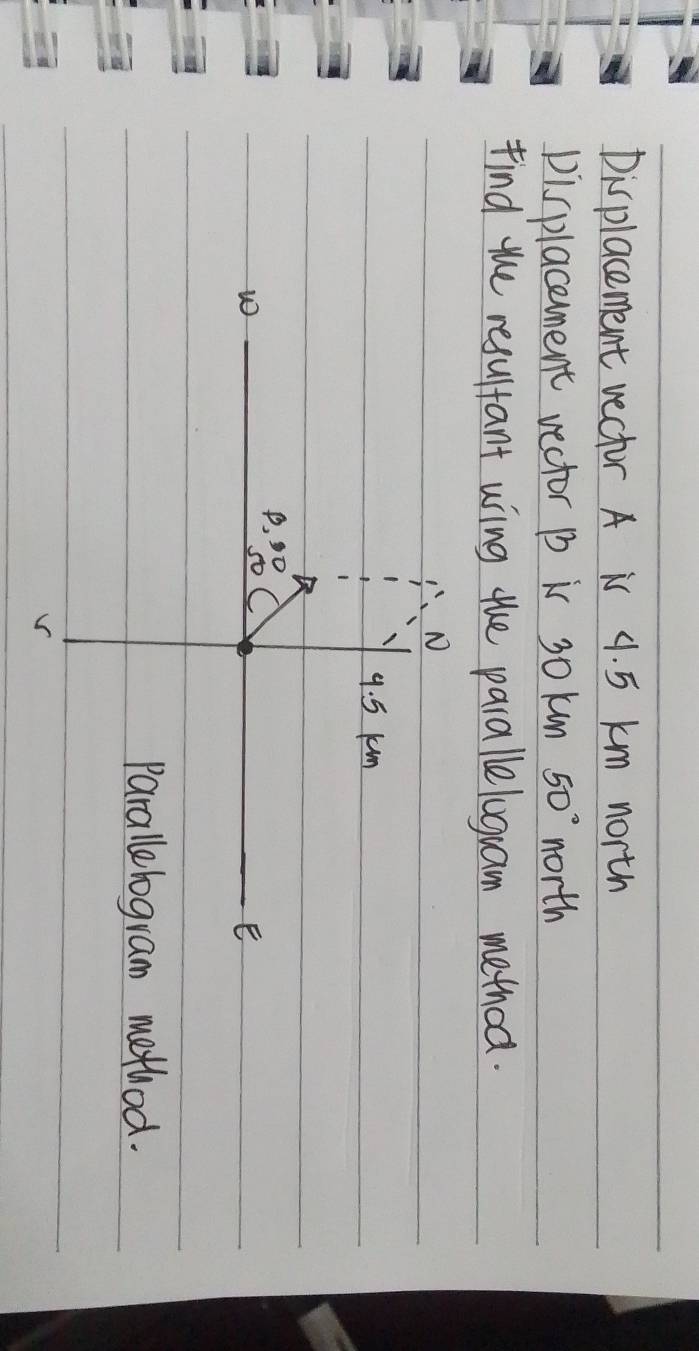 Displacement vector A is 4.5 km north
Displacement vector B is 30 km 50° north
Find the resultant using the parallelogram method.
N
4.5 km
B, 30
50
W
E
S
Parallelogram method.